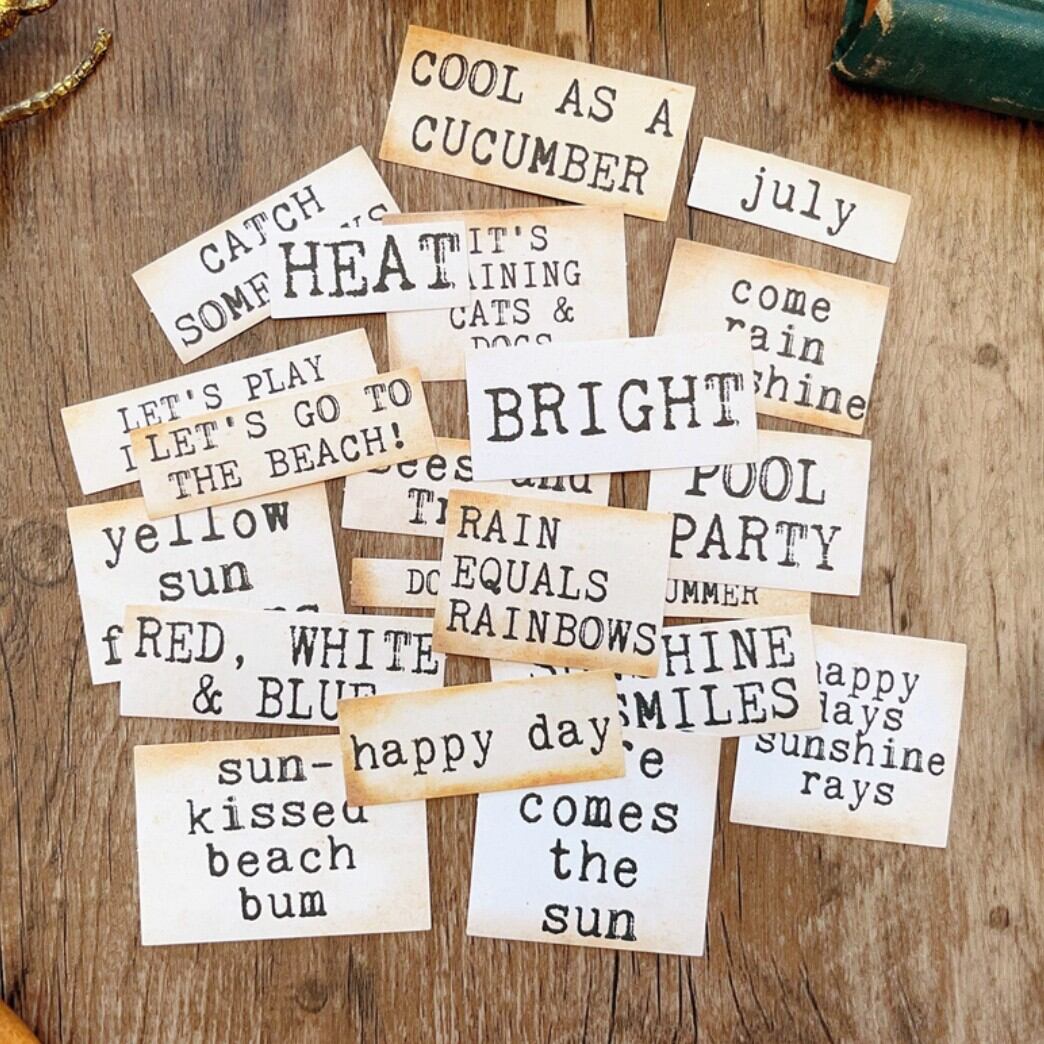 COOL AS A
CUCUMBER
july
CATCH
HEAT
IT'S
CATS &
DOGS
come
rain
shine
LET'S PLAY
LET'S GO TO
THE BEACH!
BRIGHT
and
POOL
PARTY
yellow
sun
RAIN
EQUALS
RAINBOWS
RED, WHITE
& BLUE
SMILES
happy
days
sunshine
rays
happy day
sun-
kissed
beach
bum
comes
the
sun